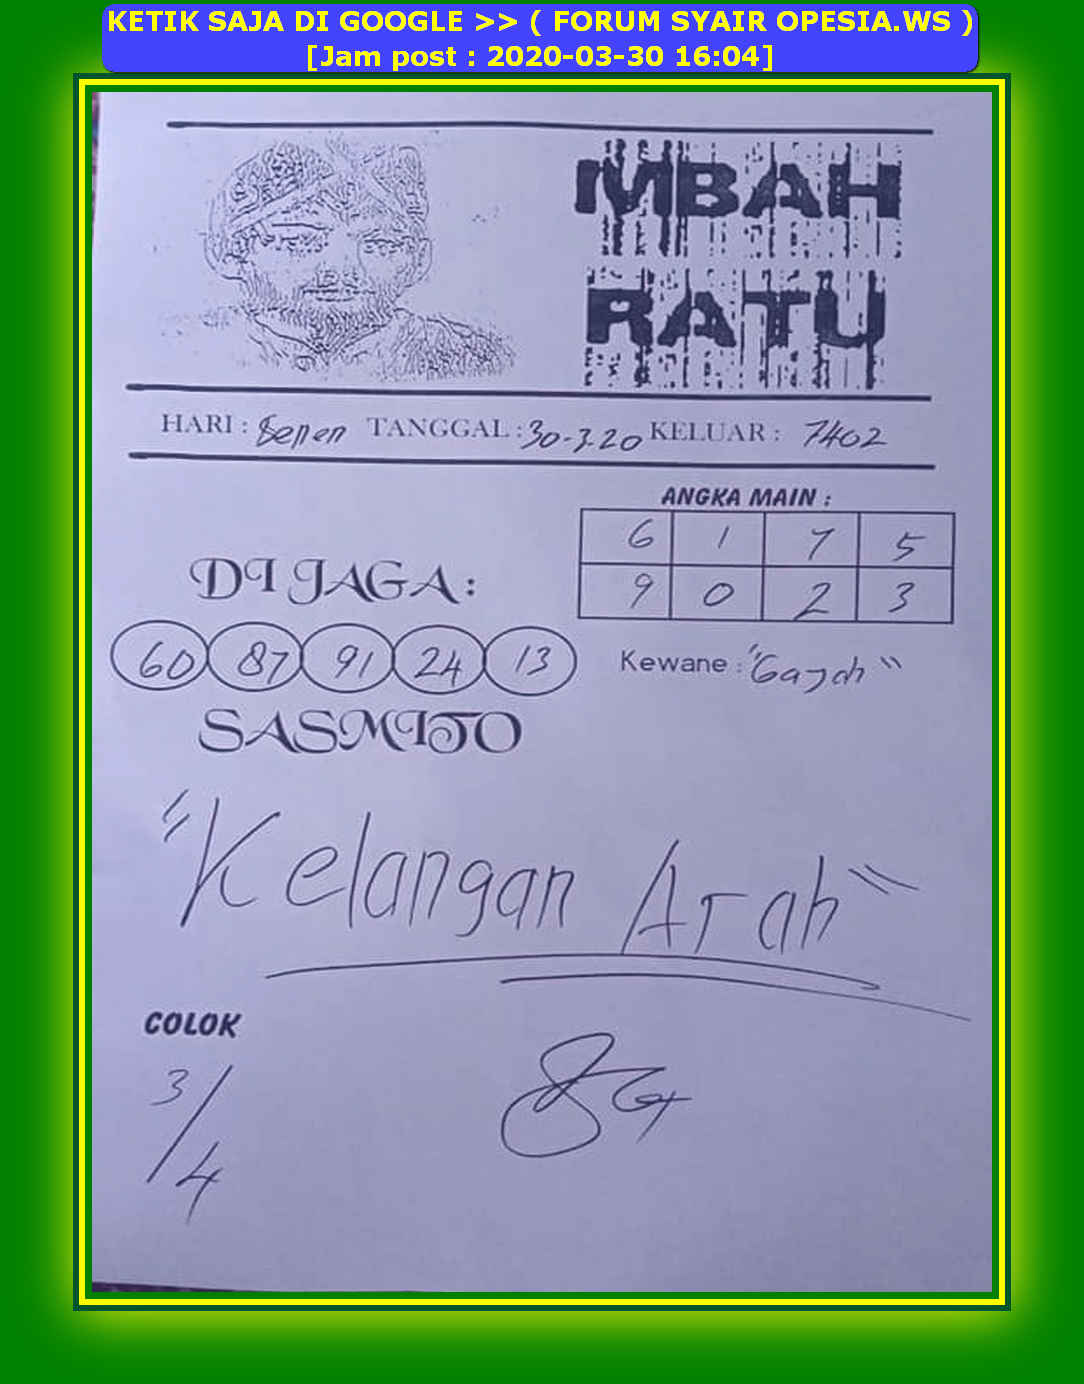 KETIK SAJA DI GOOGLE >> ( FORUM SYAIR OPESIA.WS )
[Jam post : 2020-03-30 16:04]
MBAH
RATU
HARI : Senen TANGGAL : 30-3-20 KELUAR : 7402
ANGKA MAIN :
6 1 7 5
9 0 2 3
DI JAGA :
60 87 91 24 13
Kewane : "Gajah"
SASMITO
"Kelangan Arah"
COLOK
3/4